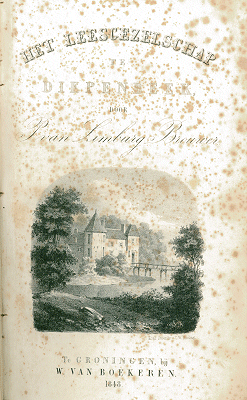 HET LEESGEZELSCHAP
TE
DIEPENBEEK
DOOR
P. van Limburg Brouwer.
Te GRONINGEN, bij
W. VAN BOEKEREN.
1848